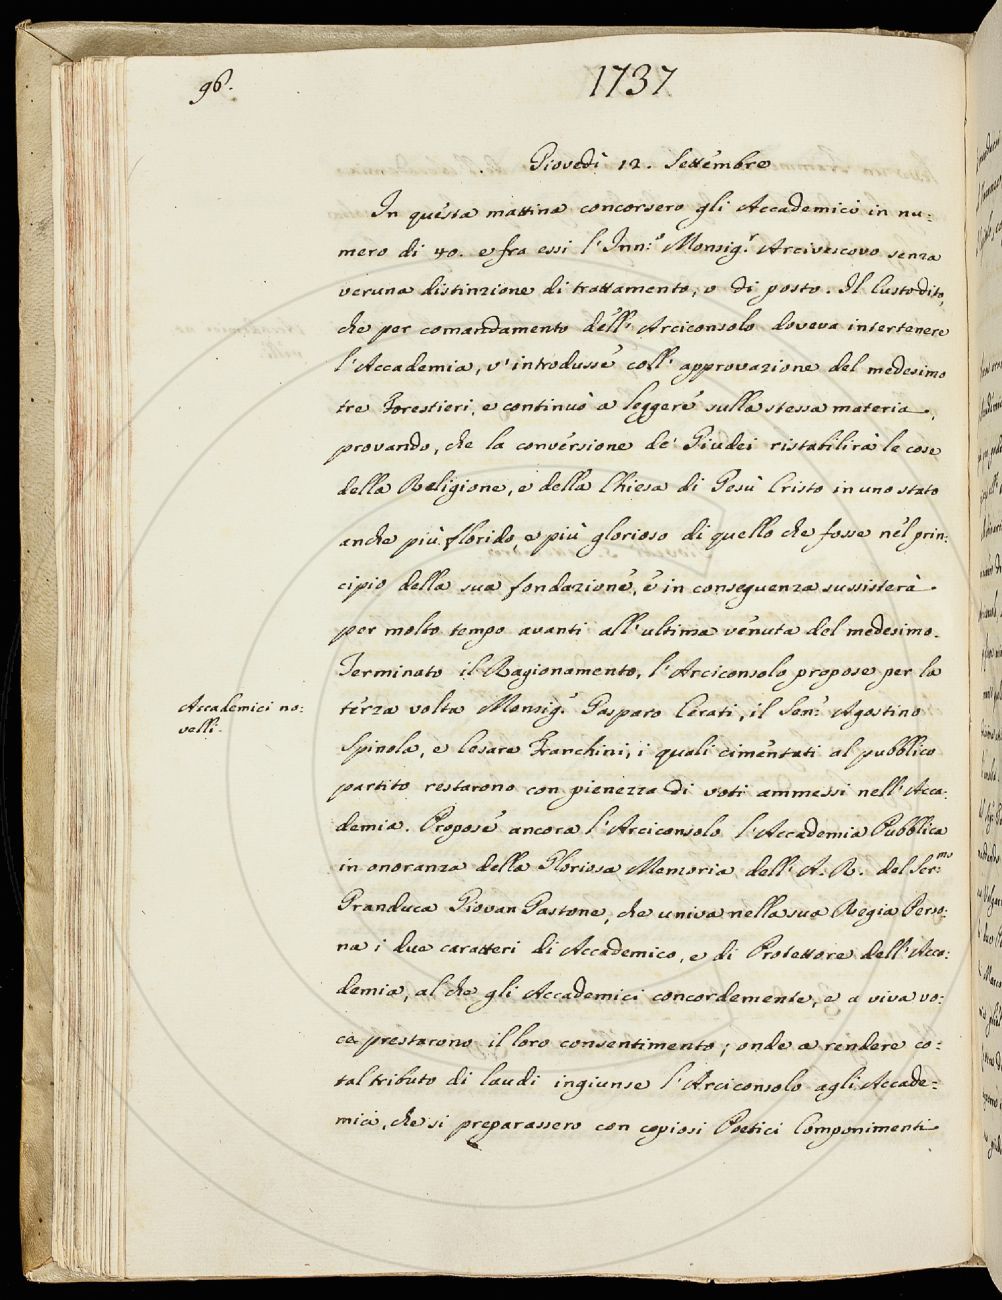 96.
1737
Giovedì 12. Settembre
In questa mattina concorsero gli Accademici in nu:
mero di 40. e fra essi l'Inn:º Monsig.r Arcivescovo senza
veruna distinzione di trattamento, o di posto. Il Custodito,
che per comandamento dell'Arciconsolo doveva intertenere
l'Accademia, v'introdusse coll'approvazione del medesimo
tre Forestieri, e continuò a leggere sulla stessa materia,
provando, che la conversione de' Giudei ristabilirà le cose
della Religione, e della Chiesa di Gesù Cristo in uno stato
anche più florido, e più glorioso di quello che fosse nel prin:
cipio della sua fondazione, e in conseguenza sussisterà
per molto tempo avanti all'ultima venuta del medesimo.
Terminato il Ragionamento, l'Arciconsolo propose per la
Accademici no:
velli.
terza volta Monsig.r Gasparo Cerati, il Sen.r Agostino
Spinola, e Cesare Franchini, i quali cimentati al pubblico
partito restarono con pienezza di voti ammessi nell'Acca:
demia. Propose ancora l'Arciconsolo l'Accademia Pubblica
in onoranza della Gloriosa Memoria dell'A. R. del Ser:mo
Granduca Giovan Gastone, che univa nella sua Regia Perso:
na i due caratteri di Accademico, e di Protettore dell'Acca:
demia, al che gli Accademici concordemente, e a viva vo:
ce prestarono il loro consentimento; onde a rendere co:
tal tributo di laudi ingiunse l'Arciconsolo agli Accade:
mici, che si preparassero con copiosi Poetici Componimenti